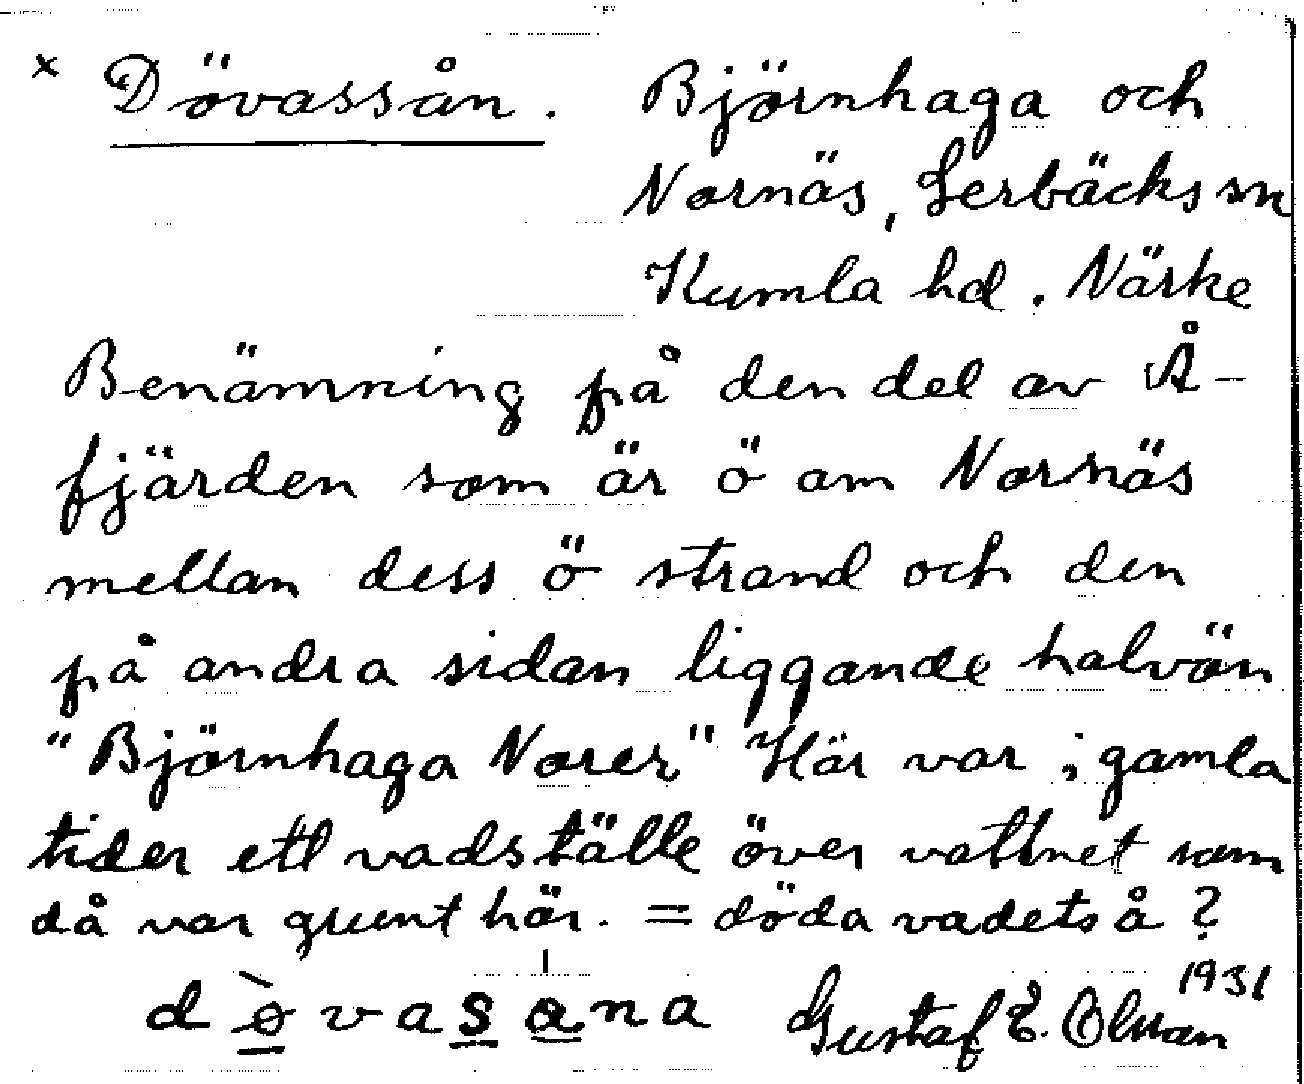 x Dövassån. Björnhaga och
Nornäs, Lerbäcks sn
Kumla hd. Närke
Benämning på den del av Å-
fjärden som är ö om Nornäs
mellan dess ö strand och den
på andra sidan liggande halvön
"Björnhaga Norer" Här var i gamla
tider ett vadställe över vattnet som
då var grunt här. = döda vadets å ?
døvasana Gustaf E. 1931